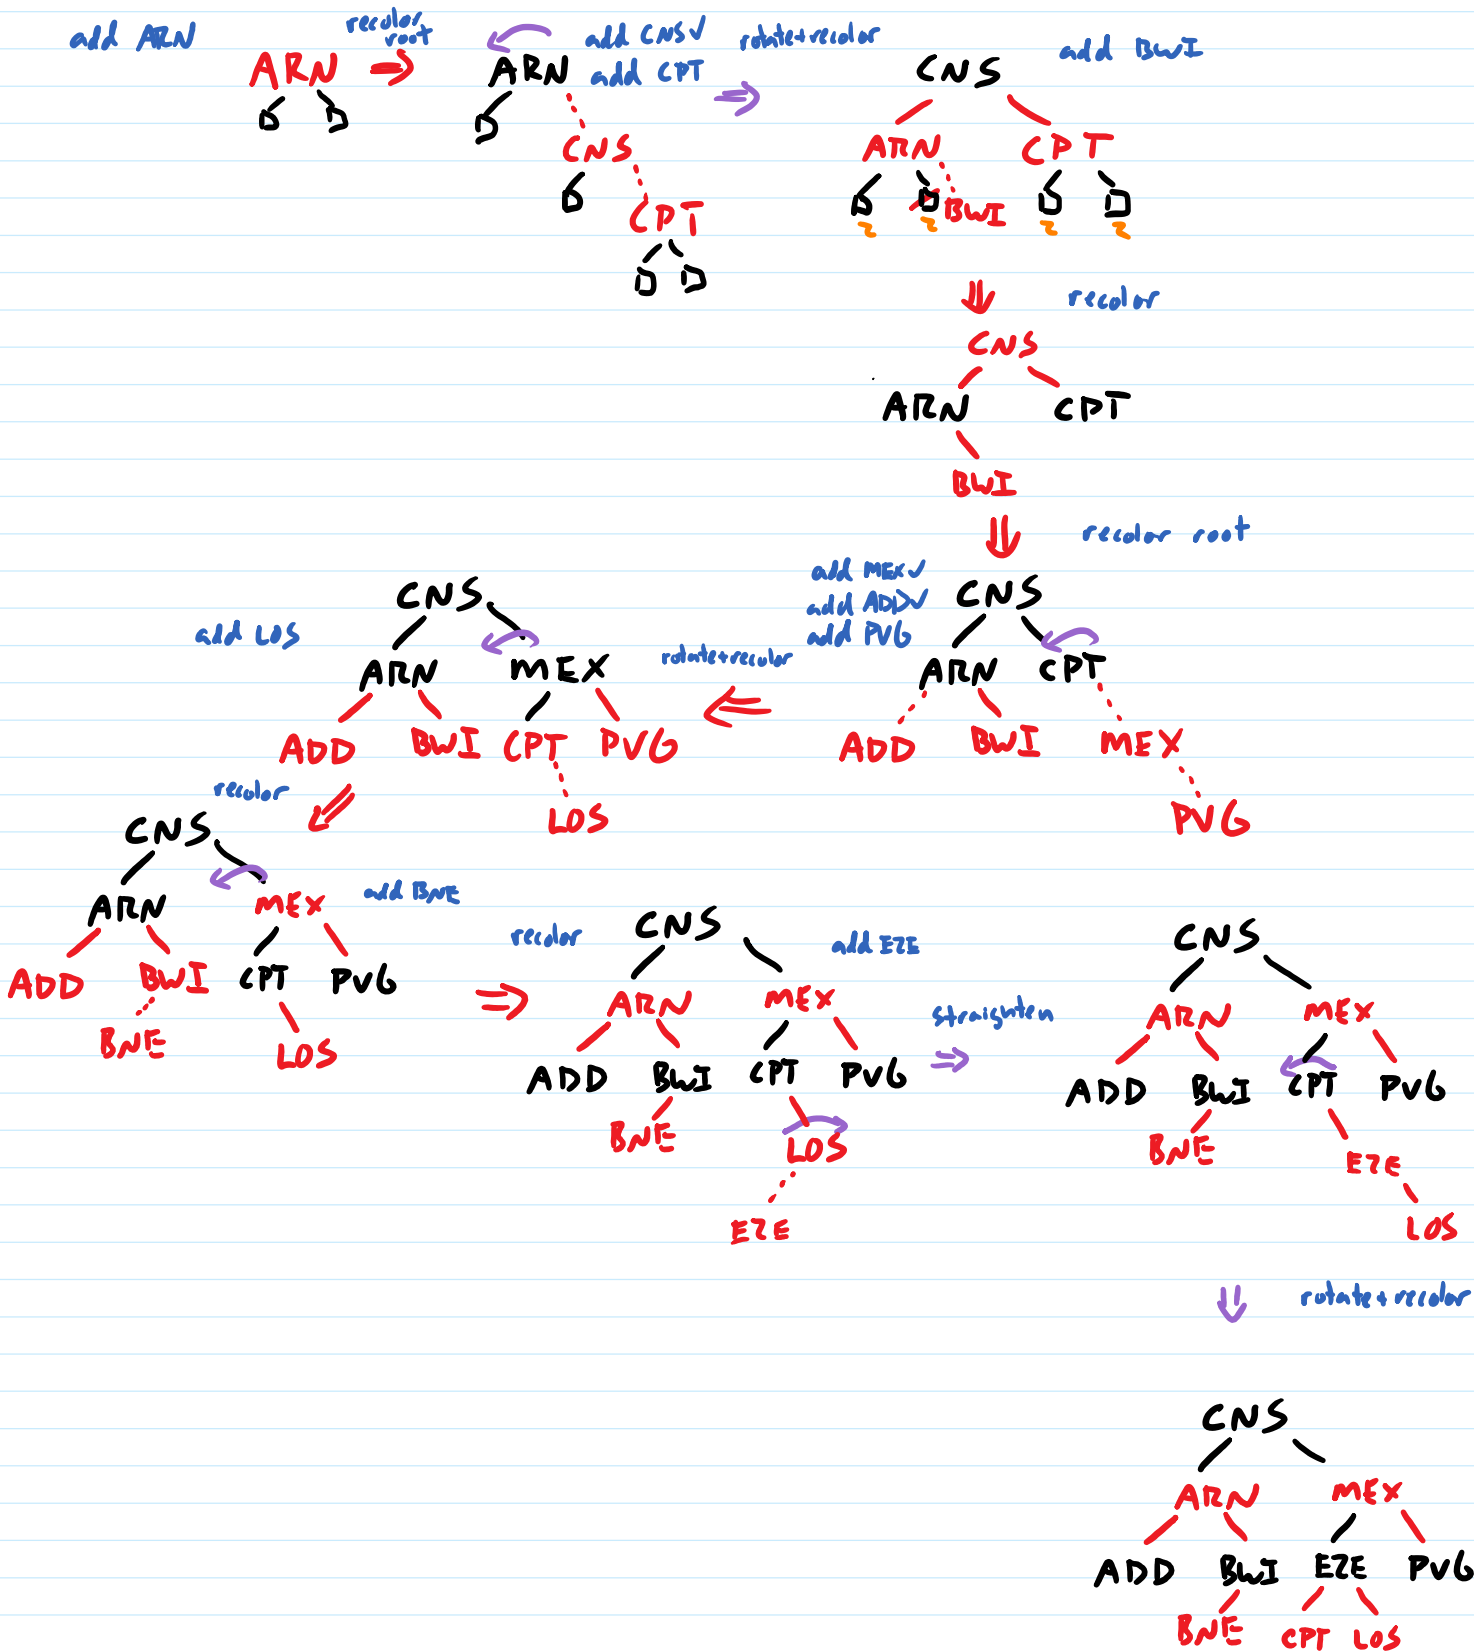 add ARN
ARN
recolor
root
ARN
CNS
CPT
add CNS✓
add CPT
rotate+recolor
CNS
ARN CPT
BWI
add BWI
recolor
CNS
ARN CPT
BWI
recolor root
add MEX✓
add ADD✓
add PVG
CNS
ARN CPT
ADD BWI MEX
PVG
rotate+recolor
CNS
add LOS
ARN MEX
ADD BWI CPT PVG
LOS
recolor
CNS
ARN MEX
ADD BWI CPT PVG
BNE LOS
add BNE
recolor
CNS
ARN MEX
ADD BWI CPT PVG
BNE LOS
EZE
add EZE
straighten
CNS
ARN MEX
ADD BWI CPT PVG
BNE EZE
LOS
rotate+recolor
CNS
ARN MEX
ADD BWI EZE PVG
BNE CPT LOS